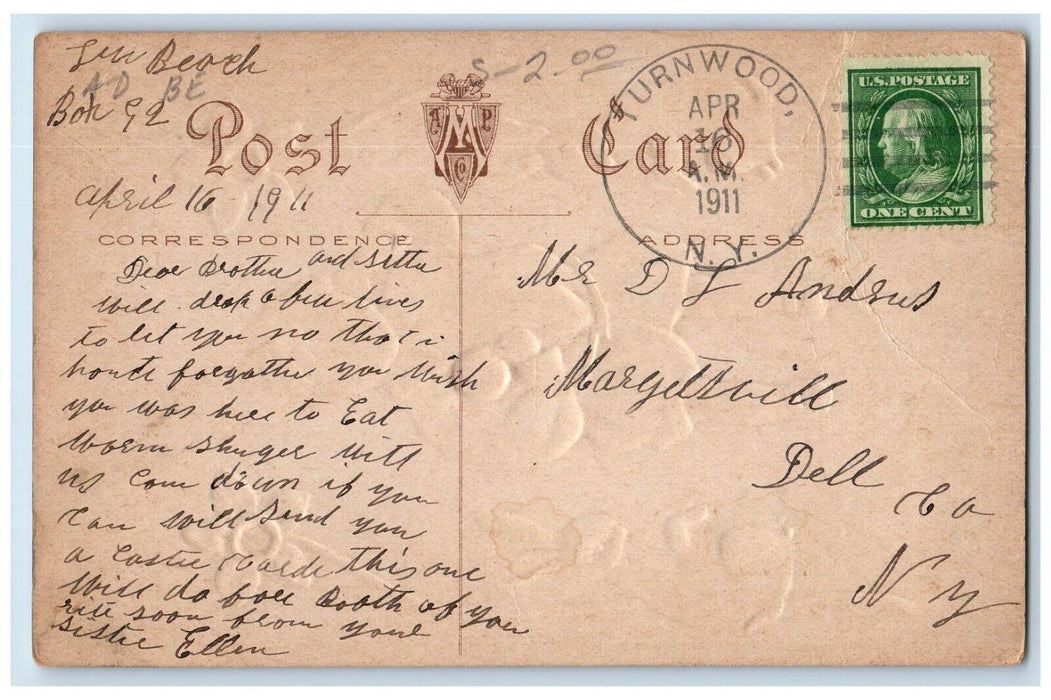 Lew Beach
Box 92
AD BE
S-2.00
Post Card
A M P Co
TURNWOOD,
APR
16
A.M.
1911
N. Y.
U.S. POSTAGE
ONE CENT
April 16 - 1911
CORRESPONDENCE
ADDRESS
Dear Brother and Sister
will drop a few lines
to let you no that i
hante forgotten you Wish
you was here to Eat
Worm Shuger With
us Com down if you
Can will send you
a Easter Carde this one
Will do for Booth of you
rite soon from your
Sister Ellen
Mr D L Andrus
Margettsvill
Dell Co
N Y